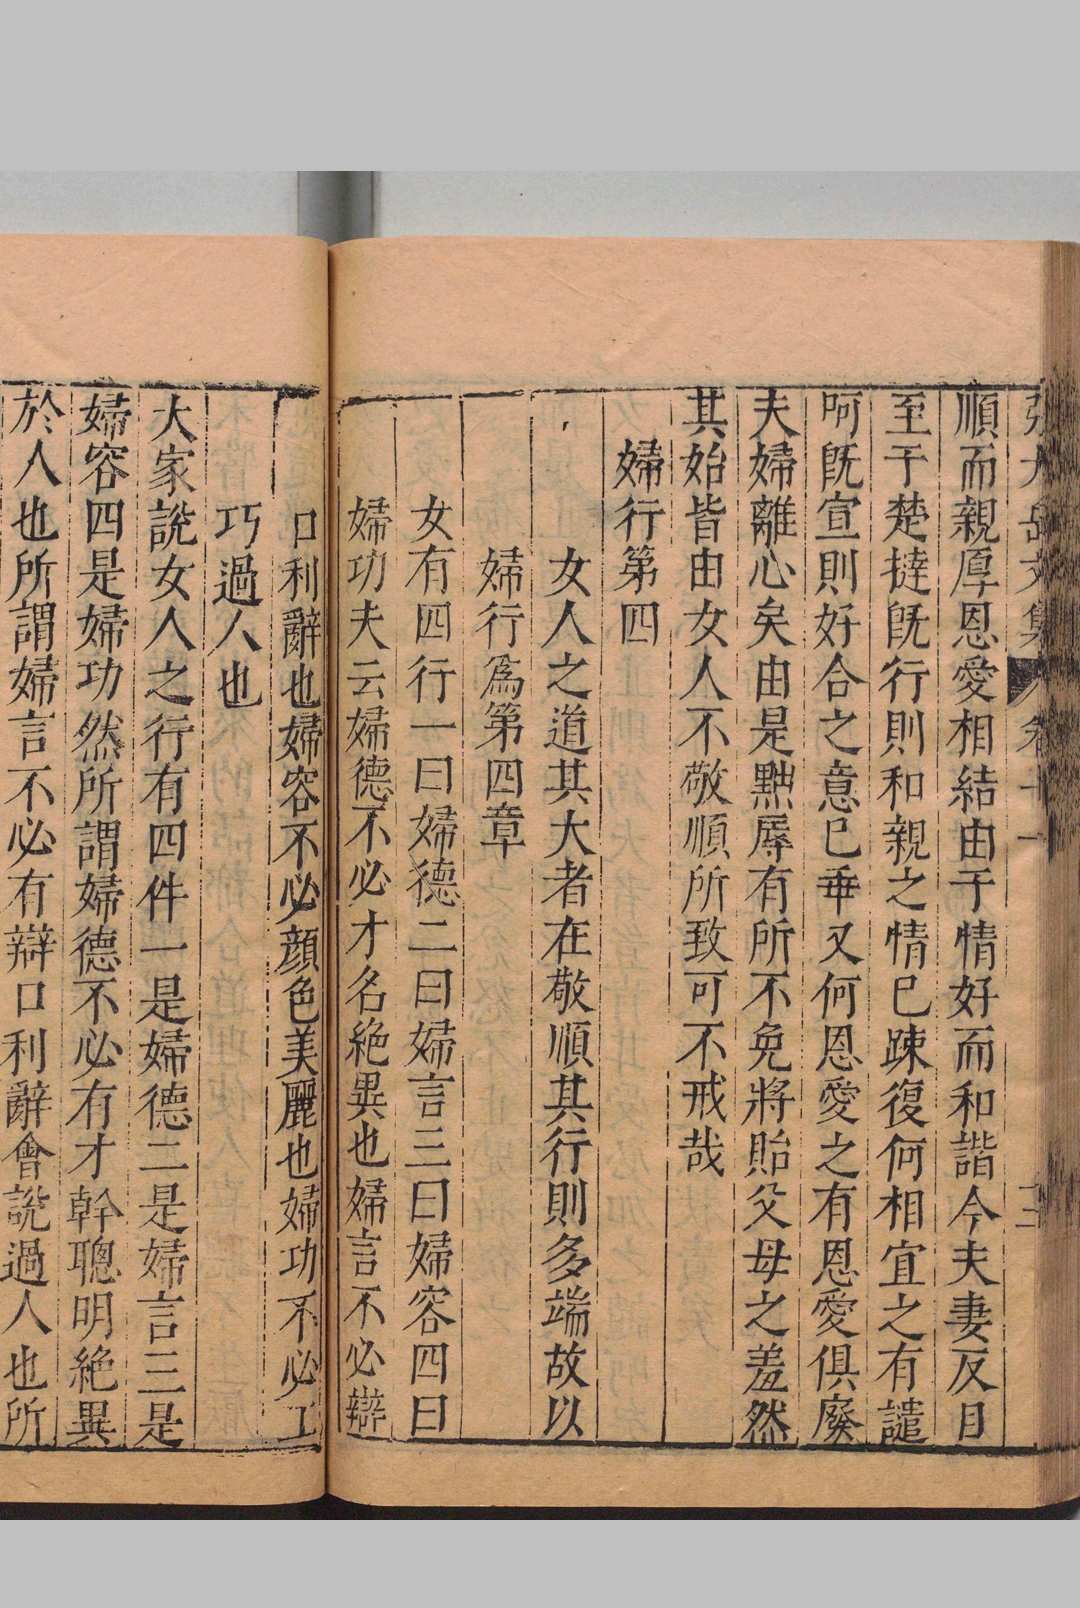 張太岳文集 卷十一 十三
順而親厚恩愛相結由于情好而和諧今夫妻反目
至于楚撻既行則和親之情已踈復何相宜之有譴
呵既宣則好合之意已乖又何恩愛之有恩愛俱廢
夫婦離心矣由是點辱有所不免將貽父母之羞然
其始皆由女人不敬順所致可不戒哉
婦行第四
女人之道其大者在敬順其行則多端故以
婦行為第四章
女有四行一曰婦德二曰婦言三曰婦容四曰
婦功夫云婦德不必才名絶異也婦言不必辯
口利辭也婦容不必顔色美麗也婦功不必工
巧過人也
大家說女人之行有四件一是婦德二是婦言三是
婦容四是婦功然所謂婦德不必有才幹聰明絶異
於人也所謂婦言不必有辯口利辭會說過人也所